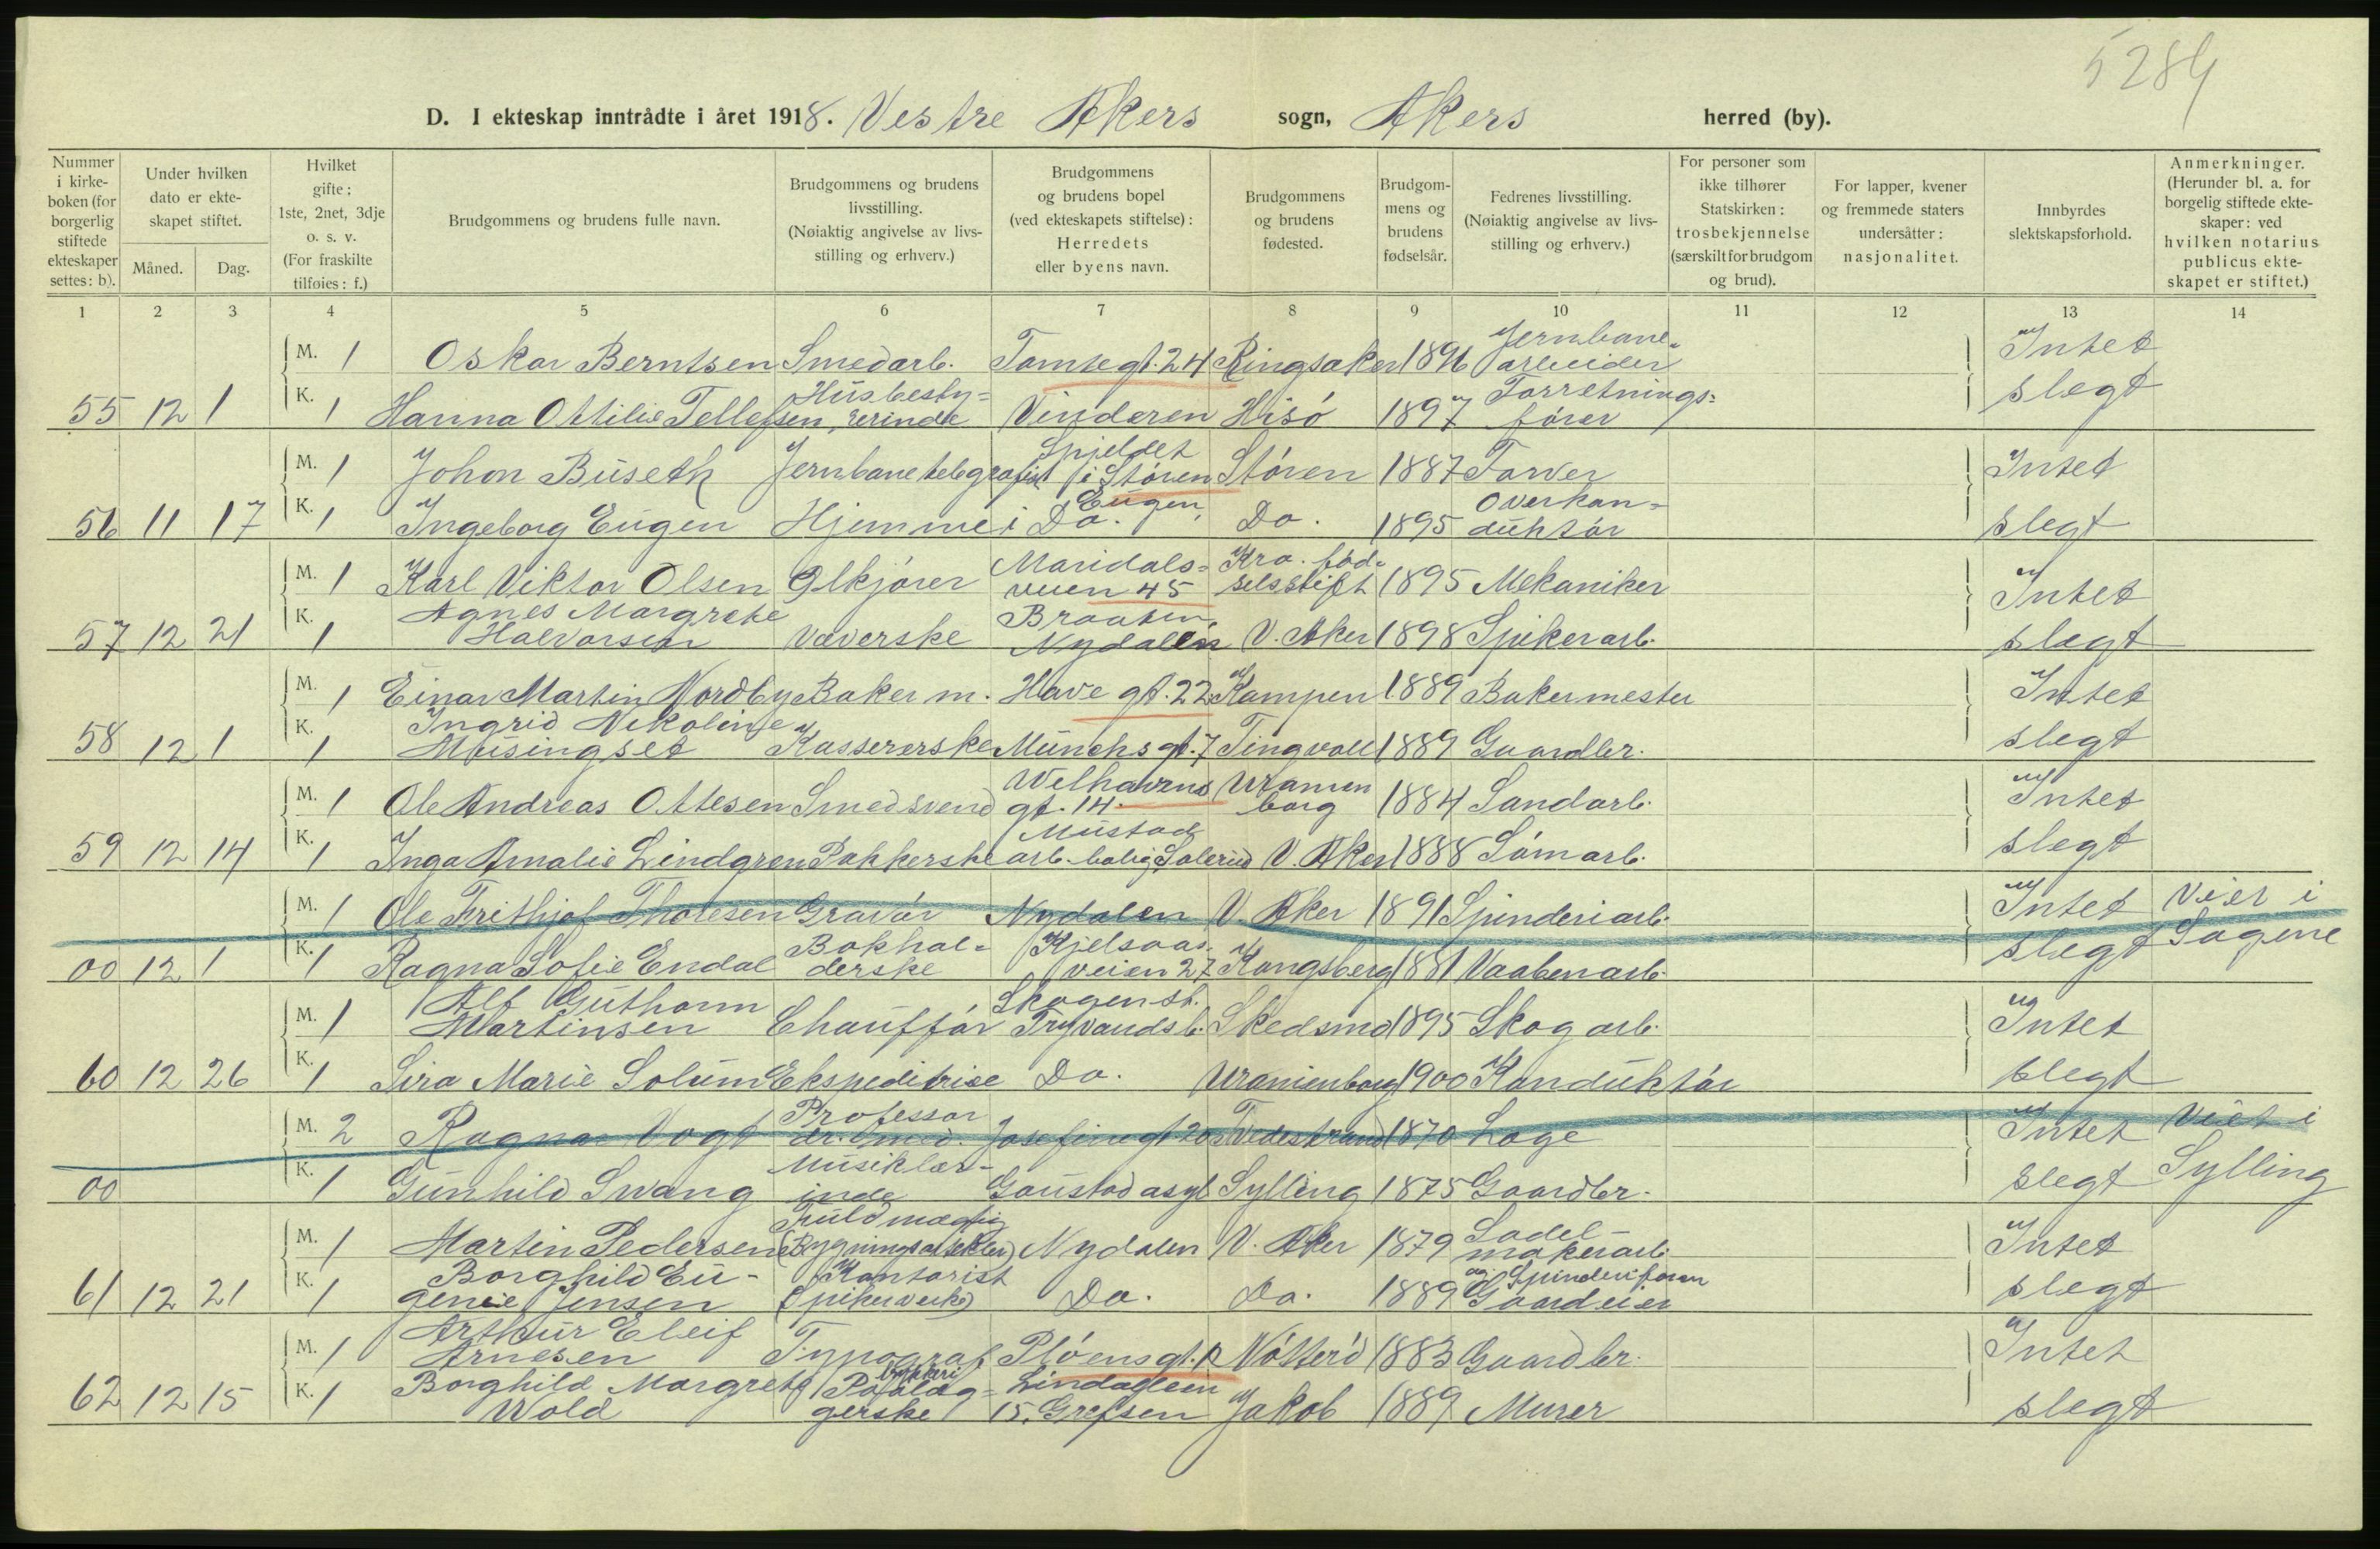 5284
D. I ekteskap inntrådte i året 1918. Vestre Akers sogn, Akers herred (by).
Nummer i kirkeboken (for borgerlig stiftede ekteskaper settes: b).
Under hvilken dato er ekteskapet stiftet.
Måned. Dag.
Hvilket gifte: 1ste, 2net, 3dje o. s. v. (For fraskilte tilføies: f.)
Brudgommens og brudens fulle navn.
Brudgommens og brudens livsstilling. (Nøiaktig angivelse av livsstilling og erhverv.)
Brudgommens og brudens bopel (ved ekteskapets stiftelse): Herredets eller byens navn.
Brudgommens og brudens fødested.
Brudgommens og brudens fødselsår.
Fedrenes livsstilling. (Nøiaktig angivelse av livsstilling og erhverv.)
For personer som ikke tilhører Statskirken: trosbekjennelse (særskilt for brudgom og brud).
For lapper, kvener og fremmede staters undersåtter: nasjonalitet.
Innbyrdes slektskapsforhold.
Anmerkninger. (Herunder bl. a. for borgelig stiftede ekteskaper: ved hvilken notarius publicus ekteskapet er stiftet.)
1 2 3 4 5 6 7 8 9 10 11 12 13 14
M. 1 Oskar Berntsen Smedarb. Tomtegt. 24 Ringsaker 1896 Jernbanearbeider Intet
55 12 1 K. 1 Hanna Ottilie Tellefsen Husbestyrerinde Vinderen Hisö 1897 Forretningsförer slegt
M. 1 Johon Buseth Jernbanetelegrafist Spjeldet i Stören Stören 1887 Farver Intet
56 11 17 K. 1 Ingeborg Eugen Hjemme i Do. Eugen, Do. 1895 Overkonduktör slegt
M. 1 Karl Viktor Olsen Ölkjörer Maridalsveien 45 Kra. fødselsstift 1895 Mekaniker Intet
57 12 21 K. 1 Agnes Margrethe Halvorsen Væverske Braaten, Nydalen V. Aker 1898 Spikerarb. slegt
M. 1 Einar Martin Nordby Baker m. Havegt. 22 Kampen 1889 Bakermester Intet
58 12 1 K. 1 Ingrid Nikoline Meisingset Kassererske Munchsgt. 7 Tingvoll 1889 Gaardbr. slegt
M. 1 Ole Andreas Ottesen Smedsvend Welhavens gt. 14. Uranienborg 1884 Sandarb. Intet
59 12 14 K. 1 Inga Amalie Lindgren Pakkerske Mustad arb.-bolig V. Aker 1888 Sömarb. slegt
M. 1 Ole Frithjof Thoresen Gravör Nydalen V. Aker 1891 Spinderiarb. Intet Viet i
00 12 1 K. 1 Ragna Sofie Endal Bokholderske Kjelsaasveien 27 Kongsberg 1881 Vaabenarb. slegt Sagene
M. 1 Alf Guthorm Martinsen Chaufför Skogen st. Tryvandsb. Skedsmo 1895 Skogarb. Intet
60 12 26 K. 1 Sira Marie Solum Ekspeditrise Do. Uranienborg 1900 Konduktör slegt
M. 2 Ragnar Vogt Professor dr. med. Josefinegt 20 Tvedestrand 1870 Læge Intet Viet i
00 K. 1 Gunhild Swang Musiklærinde Gaustad asyl Sylling 1875 Gaardbr. slegt Sylling
M. 1 Martin Pedersen Fuldmægtig Nydalen V. Aker 1879 Sadelmakerarb. Intet
61 12 21 K. 1 Borghild Eugenie Jensen Kontorist (Spikerverk) Do. Do. 1889 Gaardeier og Spinderiform slegt
M. 1 Arthur Eleif Arnesen Typograf Plöensgt. Nötterö 1883 Gaardbr. Intet
62 12 15 K. 1 Borghild Margrete Wold Paalæggerske trykkeri Lindalleen 15, Grefsen Jakob 1889 Murer slegt